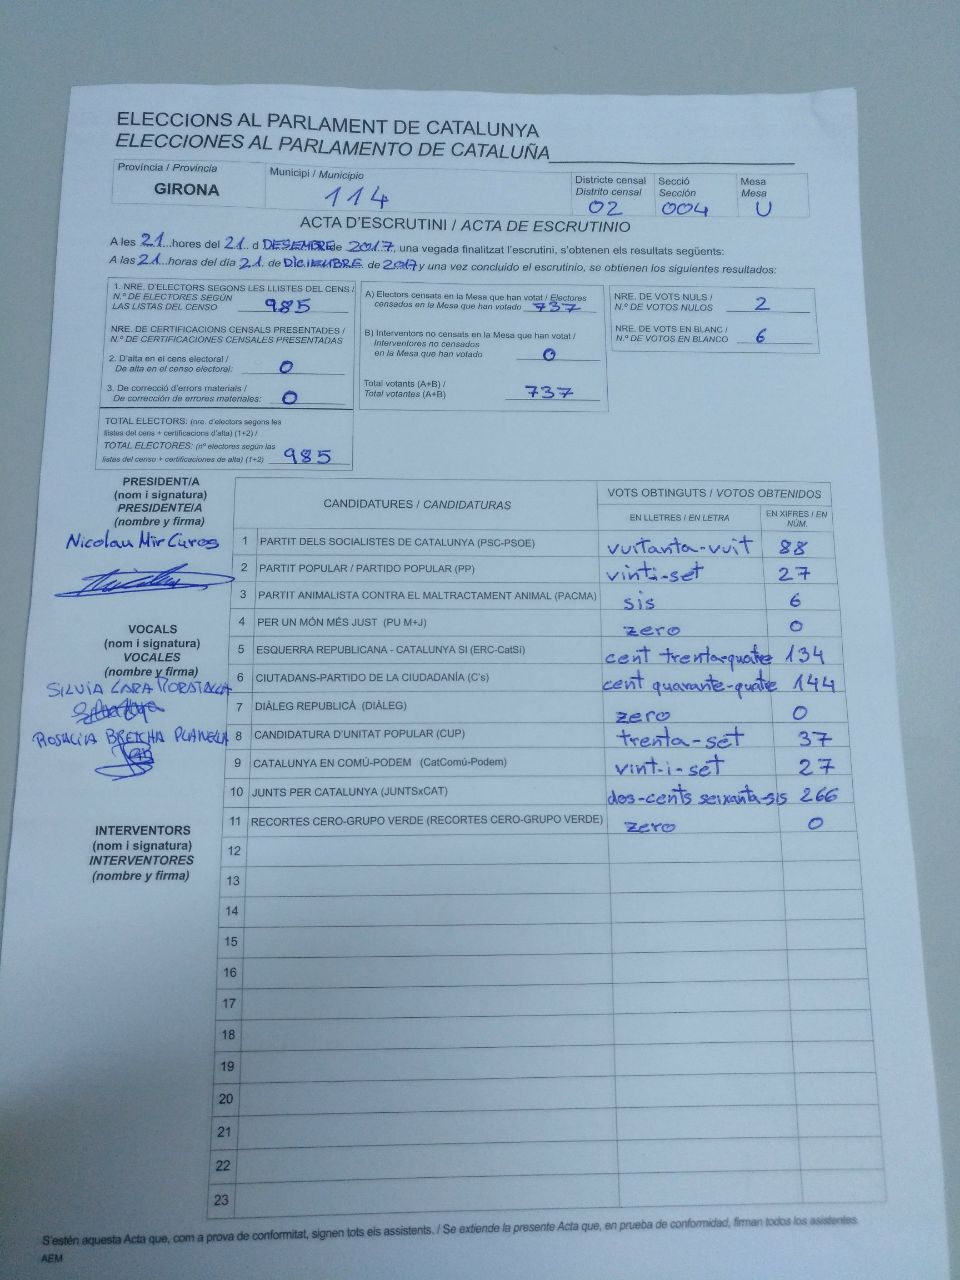 ELECCIONS AL PARLAMENT DE CATALUNYA
ELECCIONES AL PARLAMENTO DE CATALUÑA
Província / Provincia
GIRONA
Municipi / Municipio
114
Districte censal
Distrito censal
02
Secció
Sección
004
Mesa
Mesa
U
ACTA D'ESCRUTINI / ACTA DE ESCRUTINIO
A les 21 hores del 21 d DESEMBRE de 2017, una vegada finalitzat l'escrutini, s'obtenen els resultats següents:
A las 21 horas del día 21 de DICIEMBRE de 2017 y una vez concluido el escrutinio, se obtienen los siguientes resultados:
1. NRE. D'ELECTORS SEGONS LES LLISTES DEL CENS /
N.º DE ELECTORES SEGÚN
LAS LISTAS DEL CENSO 985
NRE. DE CERTIFICACIONS CENSALS PRESENTADES /
N.º DE CERTIFICACIONES CENSALES PRESENTADAS
2. D'alta en el cens electoral /
De alta en el censo electoral: 0
3. De correcció d'errors materials /
De corrección de errores materiales: 0
TOTAL ELECTORS: (nre. d'electors segons les
llistes del cens + certificacions d'alta) (1+2) /
TOTAL ELECTORES: (nº electores según las
listas del censo + certificaciones de alta) (1+2) 985
A) Electors censats en la Mesa que han votat / Electores
censados en la Mesa que han votado 737
B) Interventors no censats en la Mesa que han votat /
Interventores no censados
en la Mesa que han votado 0
Total votants (A+B) /
Total votantes (A+B) 737
NRE. DE VOTS NULS /
N.º DE VOTOS NULOS 2
NRE. DE VOTS EN BLANC /
N.º DE VOTOS EN BLANCO 6
PRESIDENT/A
(nom i signatura)
PRESIDENTE/A
(nombre y firma)
Nicolau Mir Curos
VOCALS
(nom i signatura)
VOCALES
(nombre y firma)
SILVIA LARA MORATALLA
ROSALIA BRETCHA PLANELLA
INTERVENTORS
(nom i signatura)
INTERVENTORES
(nombre y firma)
CANDIDATURES / CANDIDATURAS
VOTS OBTINGUTS / VOTOS OBTENIDOS
EN LLETRES / EN LETRA
EN XIFRES / EN NÚM.
1 PARTIT DELS SOCIALISTES DE CATALUNYA (PSC-PSOE) vuitanta-vuit 88
2 PARTIT POPULAR / PARTIDO POPULAR (PP) vint-i-set 27
3 PARTIT ANIMALISTA CONTRA EL MALTRACTAMENT ANIMAL (PACMA) sis 6
4 PER UN MÓN MÉS JUST (PU M+J) zero 0
5 ESQUERRA REPUBLICANA - CATALUNYA SI (ERC-CatSí) cent trenta-quatre 134
6 CIUTADANS-PARTIDO DE LA CIUDADANÍA (C's) cent quaranta-quatre 144
7 DIÀLEG REPUBLICÀ (DIÀLEG) zero 0
8 CANDIDATURA D'UNITAT POPULAR (CUP) trenta-set 37
9 CATALUNYA EN COMÚ-PODEM (CatComú-Podem) vint-i-set 27
10 JUNTS PER CATALUNYA (JUNTSxCAT) dos-cents seixanta-sis 266
11 RECORTES CERO-GRUPO VERDE (RECORTES CERO-GRUPO VERDE) zero 0
12
13
14
15
16
17
18
19
20
21
22
23
S'estén aquesta Acta que, com a prova de conformitat, signen tots els assistents. / Se extiende la presente Acta que, en prueba de conformidad, firman todos los asistentes.
AEM